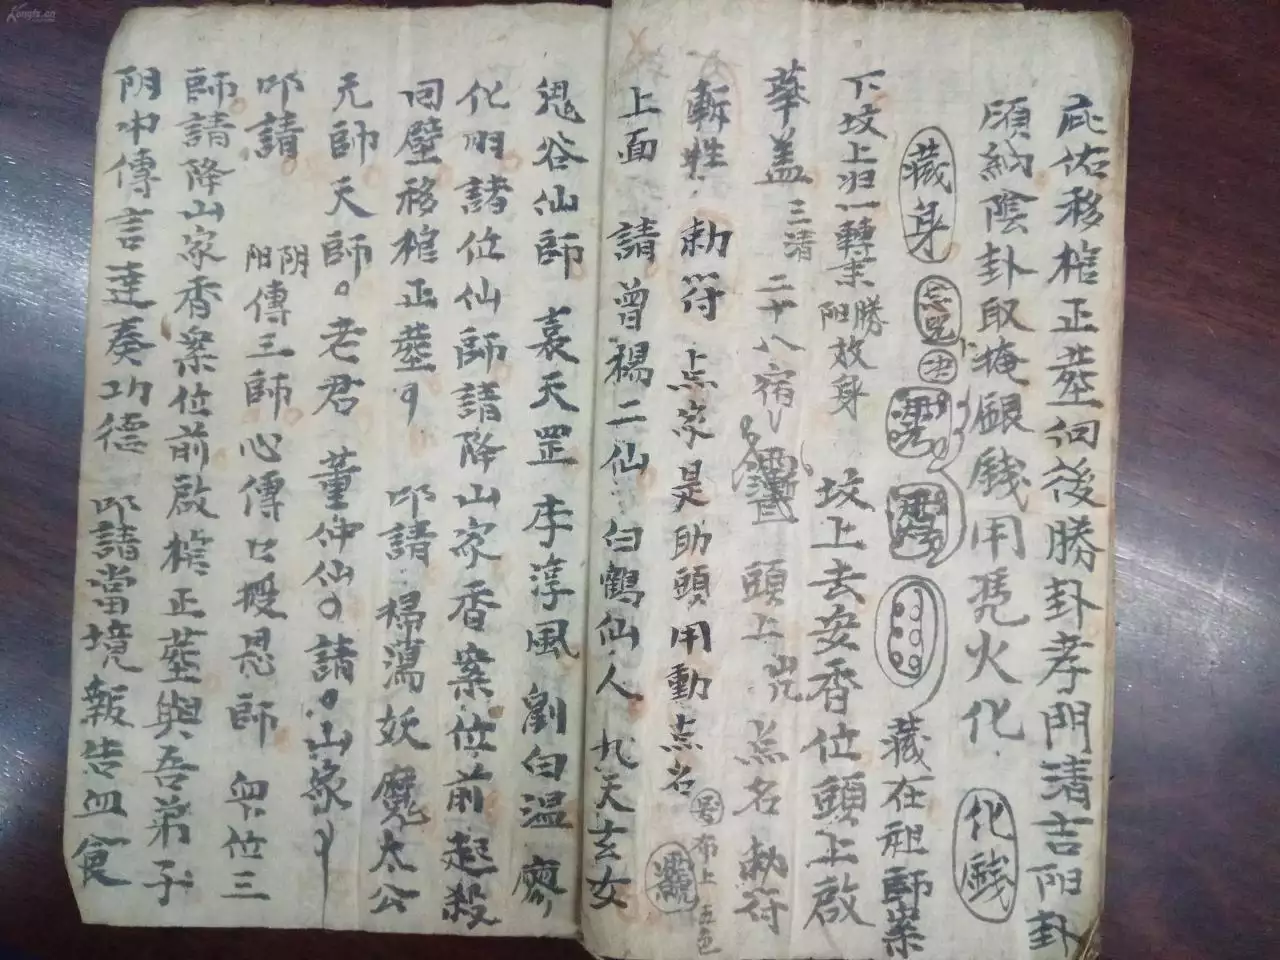 庇佑移棺正塟徊後勝卦孝門清吉阳卦
頋納陰卦取掩銀銭用凭火化 化錢
藏身 忘兇 藏在祖師案
下坟上汨一轉案 阳勝 放身 坟上去安香位頭上啟
華盖 三清 二十八宿 頭上 点名勅符
斬牲 勅符 点家是助頭用動点名 号布上五色
上面 請曾楊二仙 白鶴仙人 九天玄女
鬼谷仙師 袁天罡 李淳風 劉白温 廖
化明諸位仙師請降山家香案位前起殺
回壁移棺正塟 叩請 掃蕩妖魔太公
元師天師 老君 董仲仙 請 山家
叩請 阴阳傳三師心傳口授恩師 位三
師請降山家香案位前啟棺正塟與吾弟子
阴中傳言達奏功德 叩請當境報告血食
Kongfz.cn